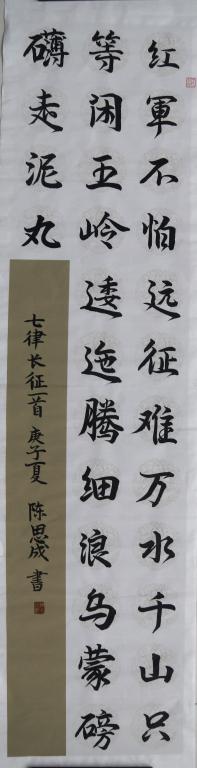 红軍不怕远征难万水千山只
等闲五岭逶迤腾细浪乌蒙磅
礴走泥丸
七律长征一首 庚子夏 陈思成 書